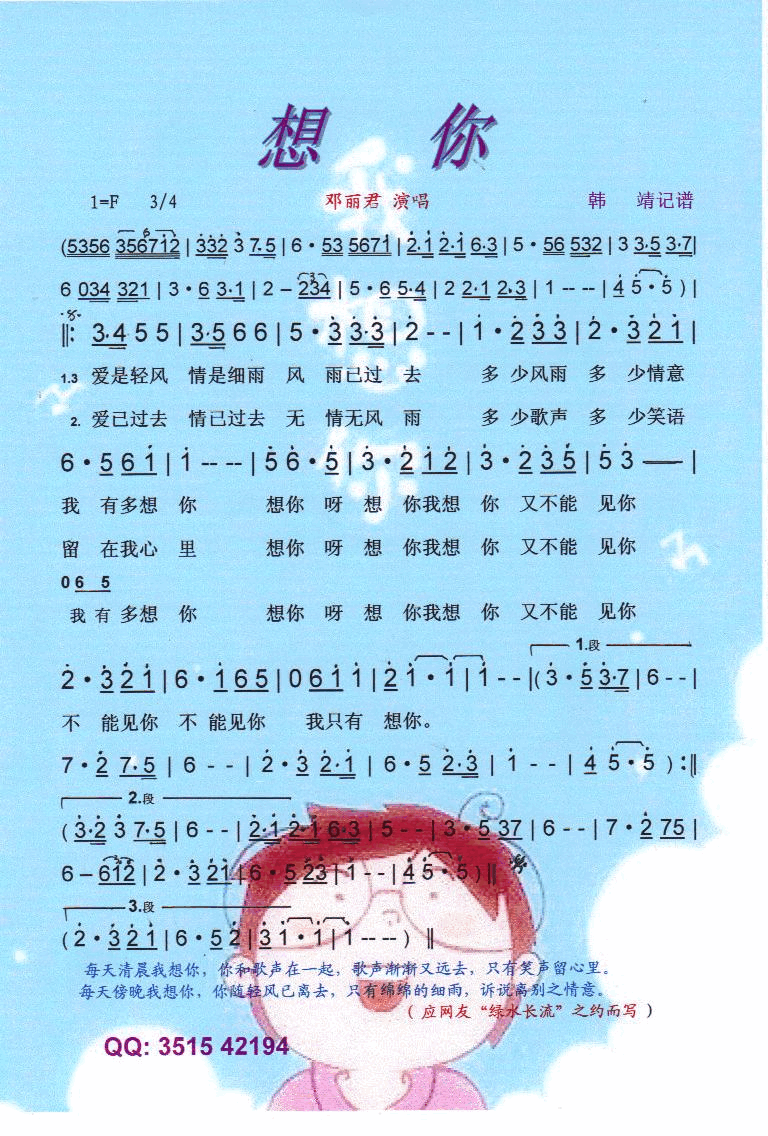 想 你
1=F 3/4 邓丽君 演唱 韩 靖记谱
(5356 356712 | 332 3 7·5 | 6·53 5671 | 2·1 2·1 6·3 | 5·56 532 | 3 3·5 3·7|
6 034 321 | 3·6 3·1 | 2 – 234 | 5·6 5·4 | 2 2·1 2·3 | 1 -- -- | 4 5·5 ) |
‖: 3·4 5 5 | 3·5 6 6 | 5·3 3·3 | 2 - - | 1·2 3 3 | 2·3 2 1 |
1.3 爱是轻风 情是细雨 风 雨已过 去 多 少风雨 多 少情意
2. 爱已过去 情已过去 无 情无风 雨 多 少歌声 多 少笑语
6·5 6 1 | 1 -- -- | 5 6·5 | 3·2 1 2 | 3·2 3 5 | 5 3 — |
我 有多想 你 想你 呀 想 你我想 你 又不能 见你
留 在我心 里 想你 呀 想 你我想 你 又不能 见你
0 6 5
我 有 多想 你 想你 呀 想 你我想 你 又不能 见你
1.段
2·3 2 1 | 6·1 6 5 | 0 6 1 1 | 2 1·1 | 1 - - |( 3·5 3·7 | 6 - - |
不 能见你 不 能见你 我只有 想你。
7·2 7·5 | 6 - - | 2·3 2·1 | 6·5 2·3 | 1 - - | 4 5·5 ) :‖
2.段
( 3·2 3 7·5 | 6 - - | 2·1 2·1 6·3 | 5 - - | 3·5 37 | 6 - - | 7·2 75 |
6 – 612 | 2·3 21 | 6·5 23 | 1 - - | 4 5·5 ) ‖
3.段
( 2·3 2 1 | 6·5 2 | 3 1·1 | 1 -- -- ) ‖
每天清晨我想你，你和歌声在一起，歌声渐渐又远去，只有笑声留心里。
每天傍晚我想你，你随轻风已离去，只有绵绵的细雨，诉说离别之情意。
( 应网友“绿水长流”之约而写 )
QQ: 3515 42194